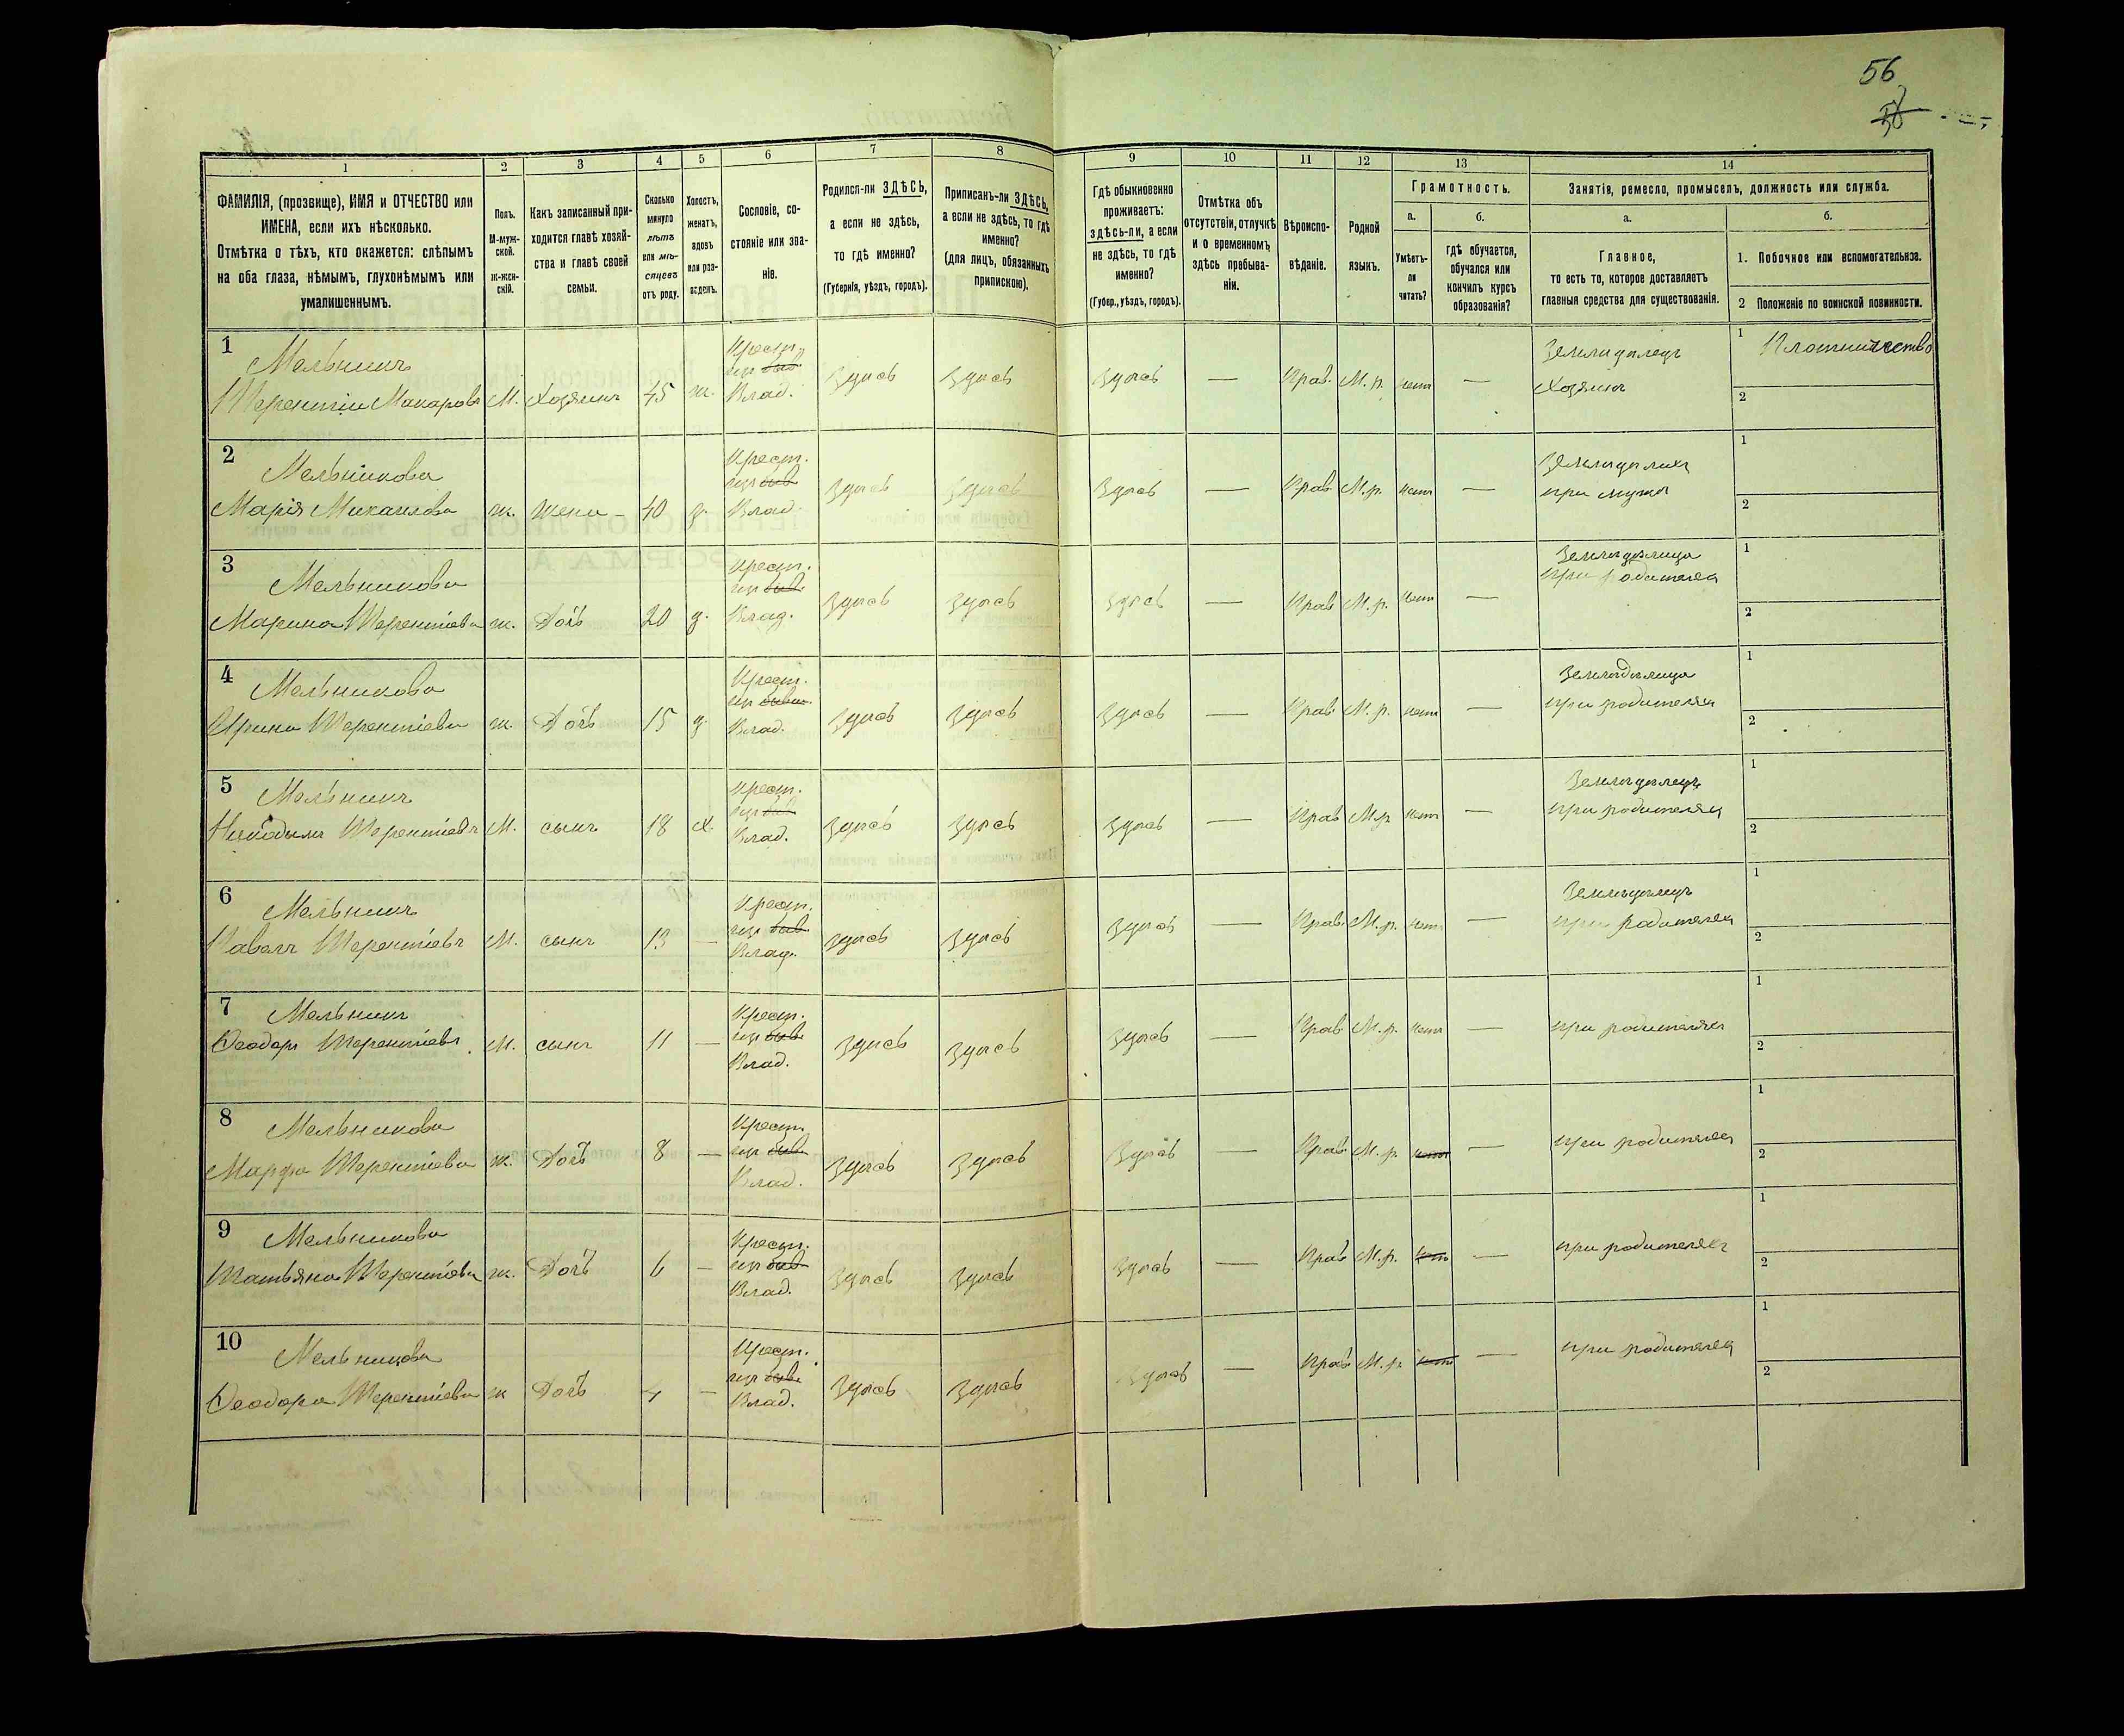 56
1
2
3
4
5
6
7
8
9
10
11
12
13
14
ФАМИЛІЯ, (прозвище), ИМЯ и ОТЧЕСТВО или
ИМЕНА, если ихъ нѣсколько.
Отмѣтка о тѣхъ, кто окажется: слѣпымъ
на оба глаза, нѣмымъ, глухонѣмымъ или
умалишеннымъ.
Полъ.
М-муж-
ской.
ж-жен-
скій.
Какъ записанный при-
ходится главѣ хозяй-
ства и главѣ своей
семьи.
Сколько
минуло
лѣтъ
или мѣ-
сяцевъ
отъ роду.
Холостъ,
женатъ,
вдовъ
или раз-
веденъ.
Сословіе, со-
стояніе или зва-
ніе.
Родился-ли ЗДѢСЬ,
а если не здѣсь,
то гдѣ именно?
(Губернія, уѣздъ, городъ).
Приписанъ-ли ЗДѢСЬ,
а если не здѣсь, то гдѣ
именно?
(для лицъ, обязанныхъ
припискою).
Гдѣ обыкновенно
проживаетъ:
здѣсь-ли, а если
не здѣсь, то гдѣ
именно?
(Губер., уѣздъ, городъ).
Отмѣтка объ
отсутствіи, отлучкѣ
и о временномъ
здѣсь пребыва-
ніи.
Вѣроиспо-
вѣданіе.
Родной
языкъ.
Грамотность.
а.
б.
Умѣетъ-
ли
читать?
гдѣ обучается,
обучался или
кончилъ курсъ
образованія?
Занятія, ремесло, промыселъ, должность или служба.
а.
б.
Главное,
то есть то, которое доставляетъ
главныя средства для существованія.
1. Побочное или вспомогательное.
2 Положеніе по воинской повинности.
1
Мельникъ
Терентій Макаровъ М. Хозяинъ 45 ж. Крест. изъ быв. Влад. Здѣсь Здѣсь Здѣсь — Прав. М. р. нетъ — Земледѣлецъ Хозяинъ 1 Плотничество
2
2
Мельникова
Марія Михаилова ж. Жена 40 з. Крест. изъ быв. Влад. Здѣсь Здѣсь Здѣсь — Прав. М. р. нетъ — при мужѣ 1
2
3
Мельникова
Марина Терентіева ж. Дочь 20 д. Крест. изъ быв. Влад. Здѣсь Здѣсь Здѣсь — Прав. М. р. нетъ — Земледѣлица при родителяхъ 1
2
4
Мельникова
Ирина Терентіева ж. Дочь 15 д. Крест. изъ бывш. Влад. Здѣсь Здѣсь Здѣсь — Прав. М. р. нетъ — Земледѣлица при родителяхъ 1
2
5
Мельникъ
Никодимъ Терентіевъ М. сынъ 18 х. Крест. изъ быв. Влад. Здѣсь Здѣсь Здѣсь — Прав. М. р. нетъ — Земледѣлецъ при родителяхъ 1
2
6
Мельникъ
Павелъ Терентіевъ М. сынъ 13 — Крест. изъ быв. Влад. Здѣсь Здѣсь Здѣсь — Прав. М. р. нетъ — Земледѣлецъ при родителяхъ 1
2
7
Мельникъ
Ѳеодоръ Терентіевъ М. сынъ 11 — Крест. изъ быв. Влад. Здѣсь Здѣсь Здѣсь — Прав. М. р. нетъ — при родителяхъ 1
2
8
Мельникова
Марфа Терентіева ж. Дочь 8 — Крест. изъ быв. Влад. Здѣсь Здѣсь Здѣсь — Прав. М. р. нетъ — при родителяхъ 1
2
9
Мельникова
Татьяна Терентіева ж. Дочь 6 — Крест. изъ быв. Влад. Здѣсь Здѣсь Здѣсь — Прав. М. р. нетъ — при родителяхъ 1
2
10
Мельникова
Ѳеодора Терентіева ж Дочь 4 — Крест. изъ быв. Влад. Здѣсь Здѣсь Здѣсь — Прав. М. р. нетъ — при родителяхъ 1
2